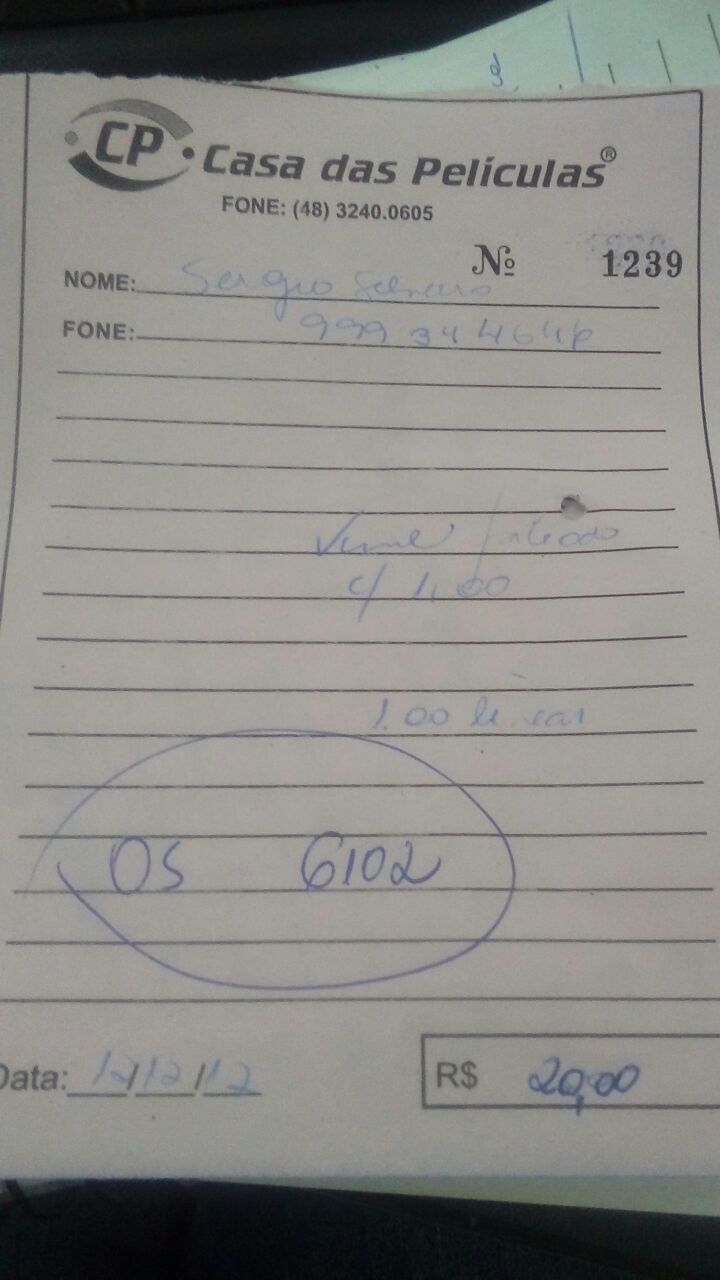 CP Casa das Películas®
FONE: (48) 3240.0605
Nº 1239
NOME: Sergio
FONE: 999 34 4646
c/ 1,00
1.00
OS 6102
Data: 12/12/12
R$ 20,00